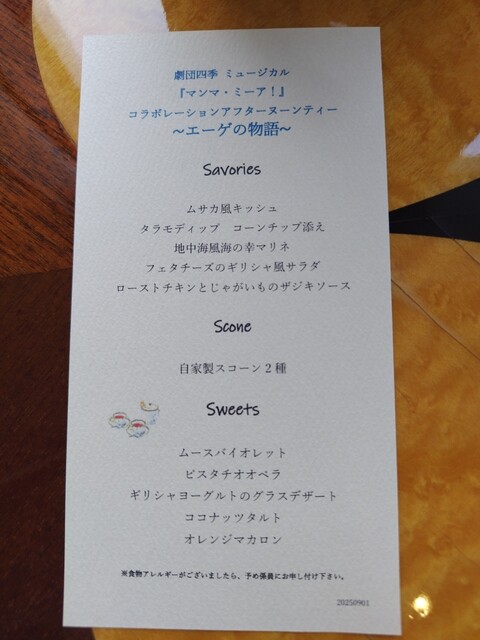 劇団四季 ミュージカル
『マンマ・ミーア！』
コラボレーションアフターヌーンティー
～エーゲの物語～
Savories
ムサカ風キッシュ
タラモディップ コーンチップ添え
地中海風海の幸マリネ
フェタチーズのギリシャ風サラダ
ローストチキンとじゃがいものザジキソース
Scone
自家製スコーン２種
Sweets
ムースバイオレット
ピスタチオオペラ
ギリシャヨーグルトのグラスデザート
ココナッツタルト
オレンジマカロン
※食物アレルギーがございましたら、予め係員にお申し付け下さい。
20250901